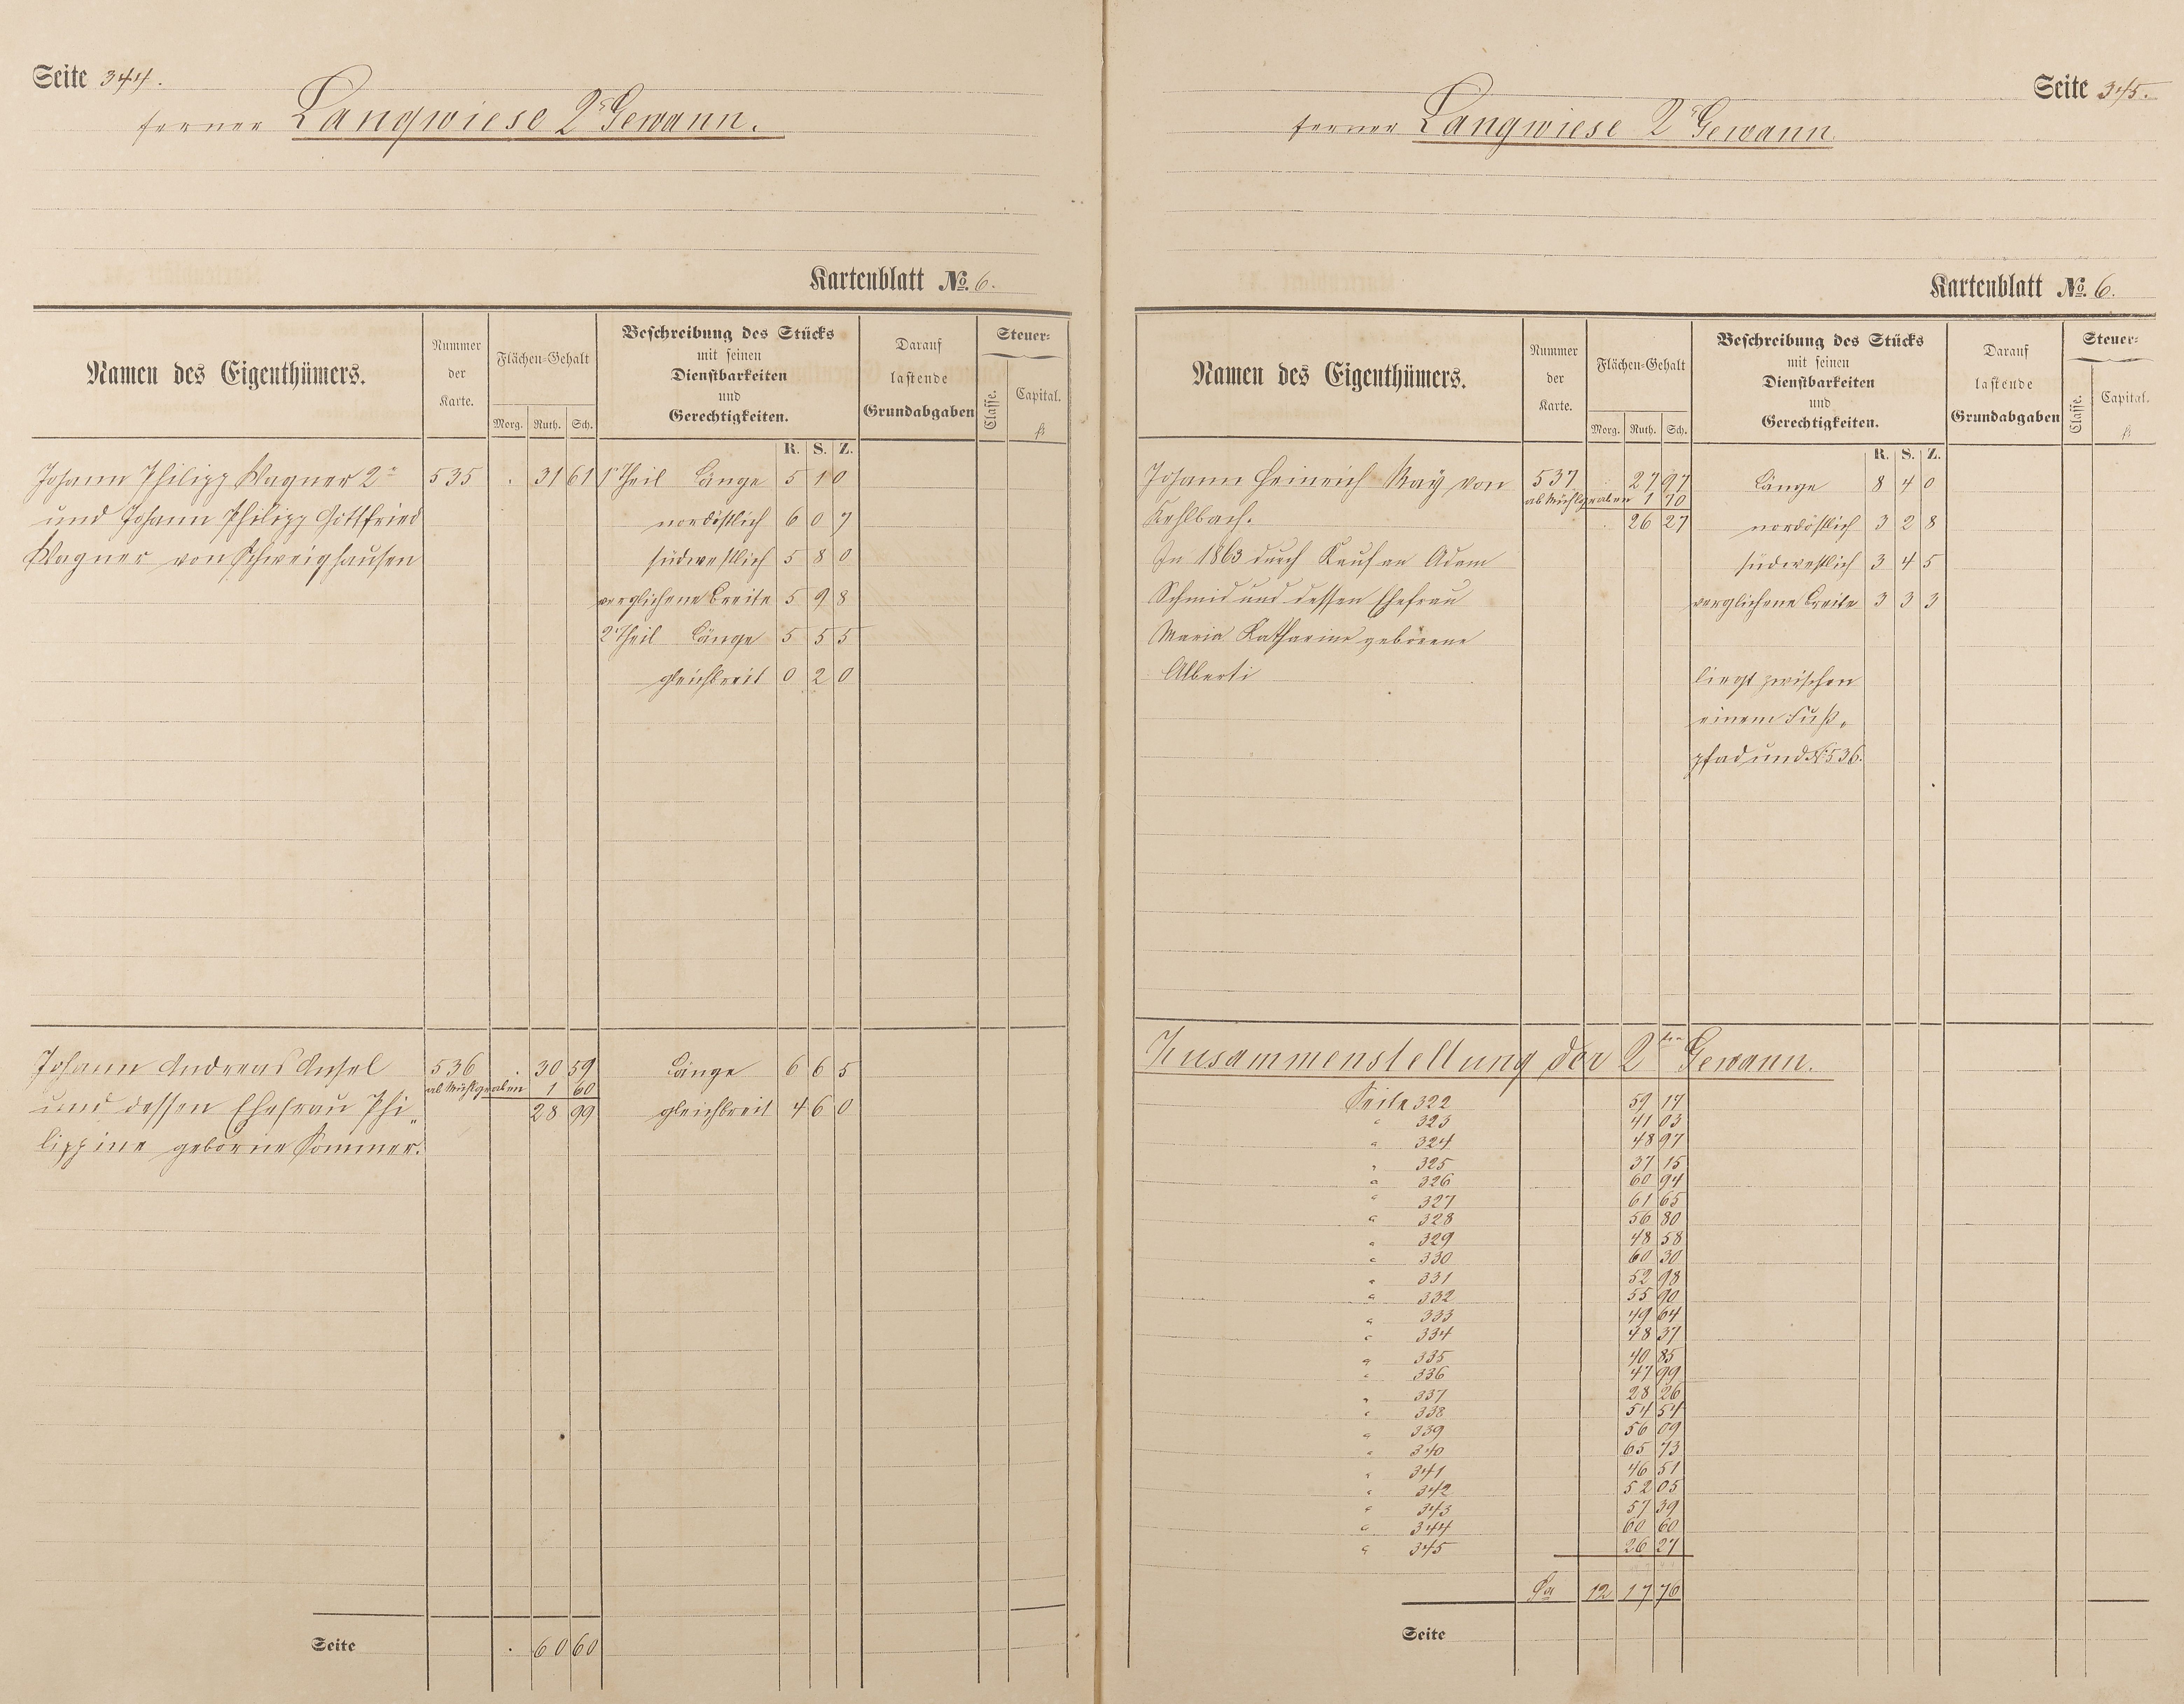 Seite 344.
ferner Langwiese 2r Gewann.
Kartenblatt No. 6.
Namen des Eigenthümers.
Nummer der Karte.
Flächen-Gehalt
Morg. Ruth. Sch.
Beschreibung des Stücks
mit seinen
Dienstbarkeiten
und
Gerechtigkeiten.
Darauf
lastende
Grundabgaben
Steuer-
Classe.
Capital.
fl
R. S. Z.
Johann Philipp Wagner 2r 535 . 31 61 1r Theil Länge 5 1 0
und Johann Philipp Gottfried nordöstlich 6 0 7
Wagner von Schweighausen südwestlich 5 8 0
verglichene Breite 5 9 8
2r Theil Länge 5 5 5
gleichbreit 0 2 0
Johann Andreas Ansel 536 . 30 59 Länge 6 6 5
ab Mühlgraben 1 60
und dessen Ehefrau Phi„ 28 99 gleichbreit 4 6 0
lippine geborne Sommer.
Seite . 60 60
Seite 345.
ferner Langwiese 2r Gewann
Kartenblatt No. 6.
Namen des Eigenthümers.
Nummer der Karte.
Flächen-Gehalt
Morg. Ruth. Sch.
Beschreibung des Stücks
mit seinen
Dienstbarkeiten
und
Gerechtigkeiten.
Darauf
lastende
Grundabgaben
Steuer-
Classe.
Capital.
fl
R. S. Z.
Johann Heinrich May von 537 27 97 Länge 8 4 0
ab Mühlgraben 1 70
Kehlbach. . 26 27 nordöstlich 3 2 8
In 1863 durch Kauf an Adam südwestlich 3 4 5
Schmid und dessen Ehefrau verglichene Breite 3 3 3
Maria Katharine geborene
Alberti liegt zwischen
einem Fuß„
pfad und No 536.
Zusammenstellung der 2ten Gewann.
Seite 322 59 17
" 323 41 03
" 324 48 97
" 325 37 15
" 326 60 94
" 327 61 65
" 328 56 80
" 329 48 58
" 330 60 30
" 331 52 98
" 332 55 90
" 333 49 64
" 334 48 37
" 335 40 85
" 336 47 99
" 337 28 26
" 338 54 54
" 339 56 09
" 340 65 73
" 341 46 51
" 342 52 05
" 343 57 39
" 344 60 60
" 345 26 27
Sa 12 17 76
Seite